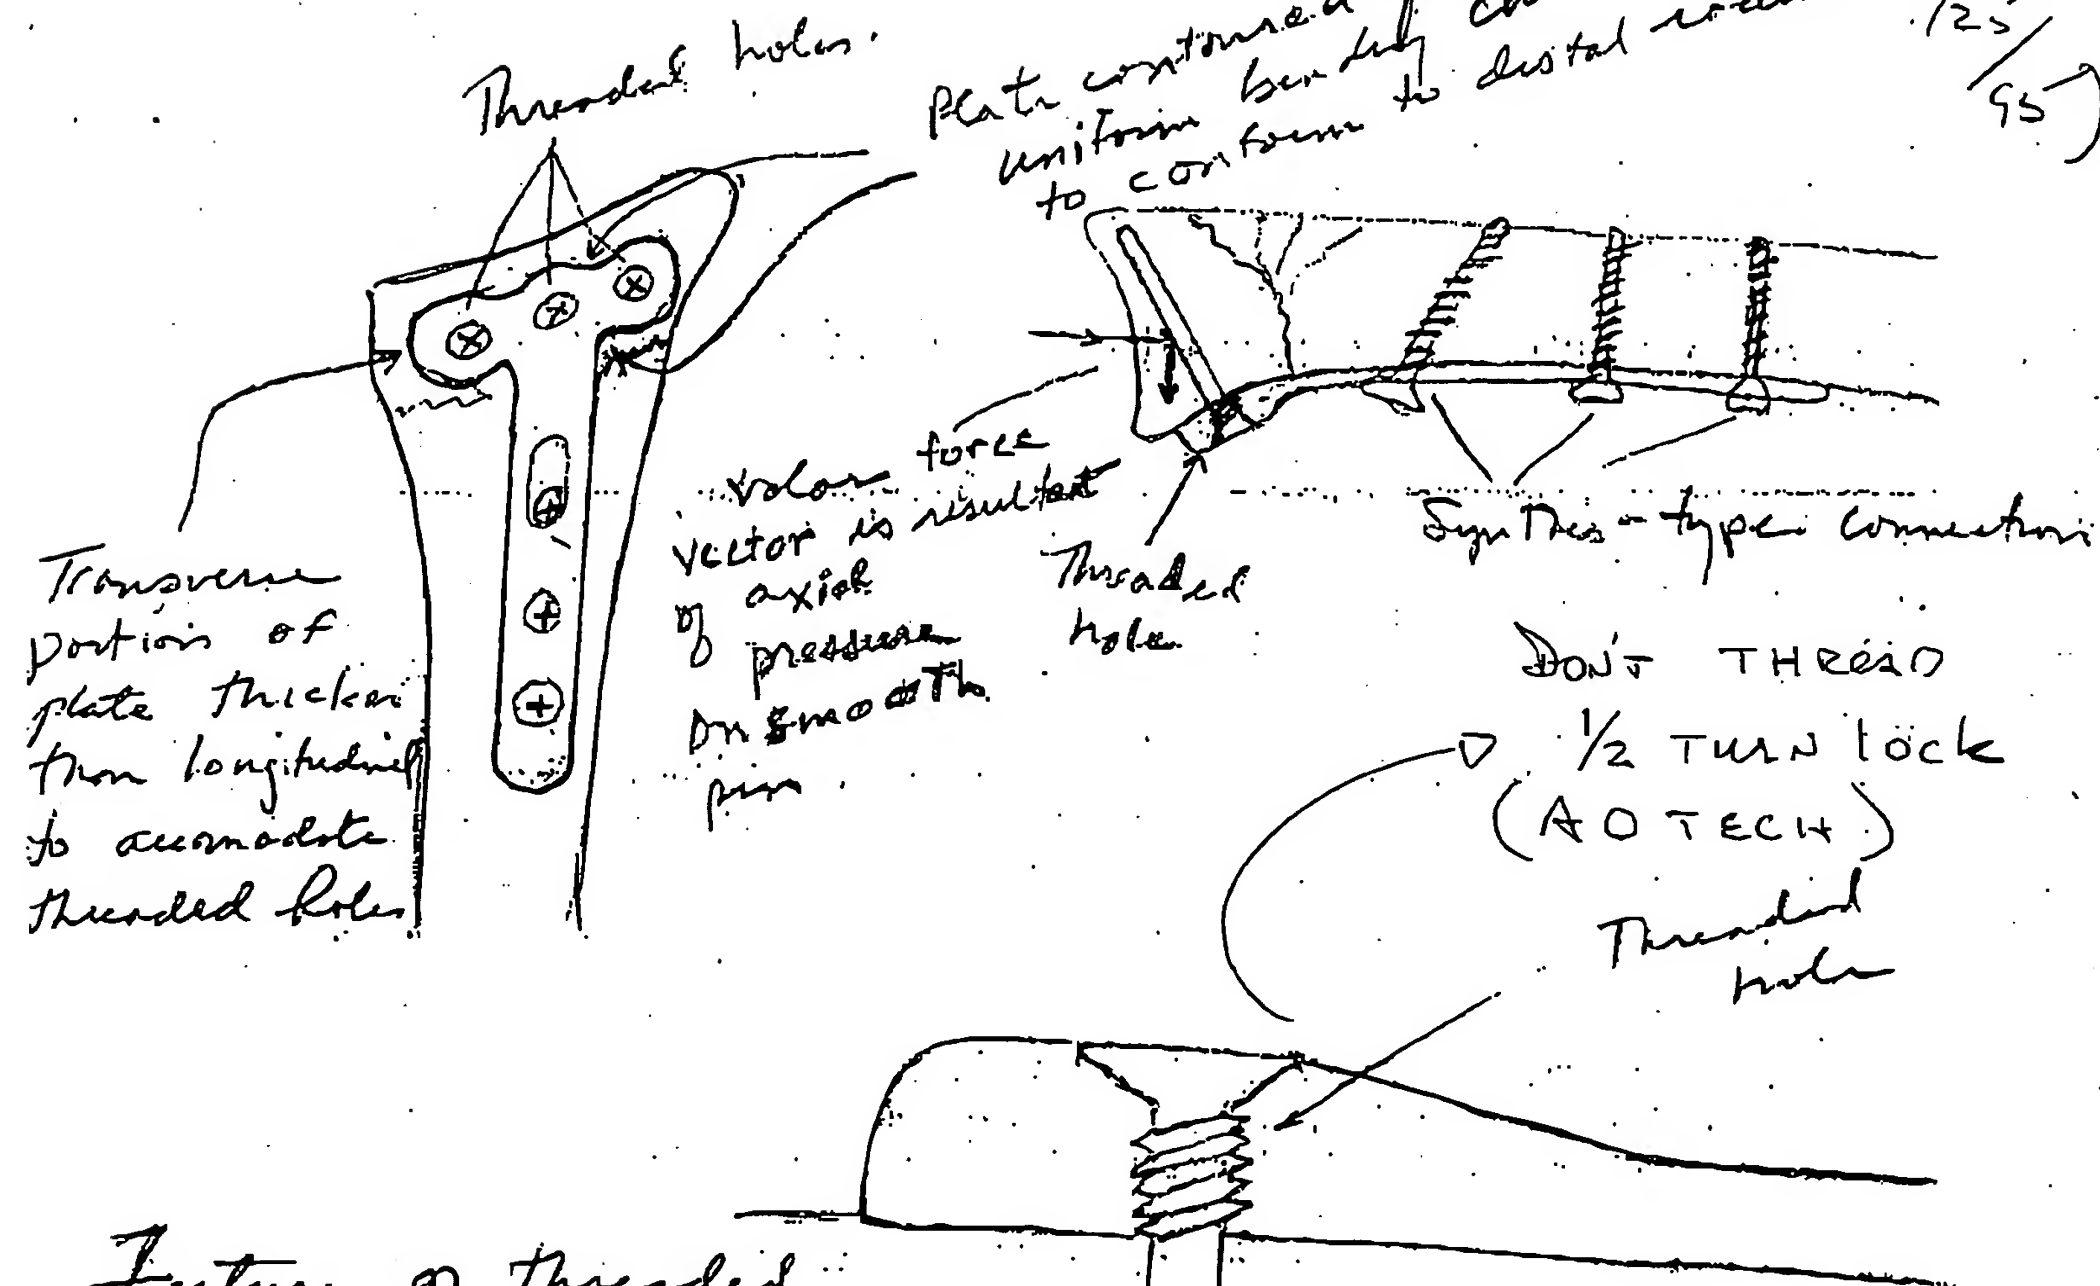 Threaded holes.
Plate contoured
uniform bending
to conform to distal
/25/
95
Transverse
portion of
plate thicker
than longitudinal
to accomodate
threaded holes
volar force
vector is resultant
of axial
pressure
on smooth
pin.
Threaded
hole
Synthes-type connection
DON'T THREAD
1/2 TURN lock
(AO TECH)
Threaded
hole
threaded